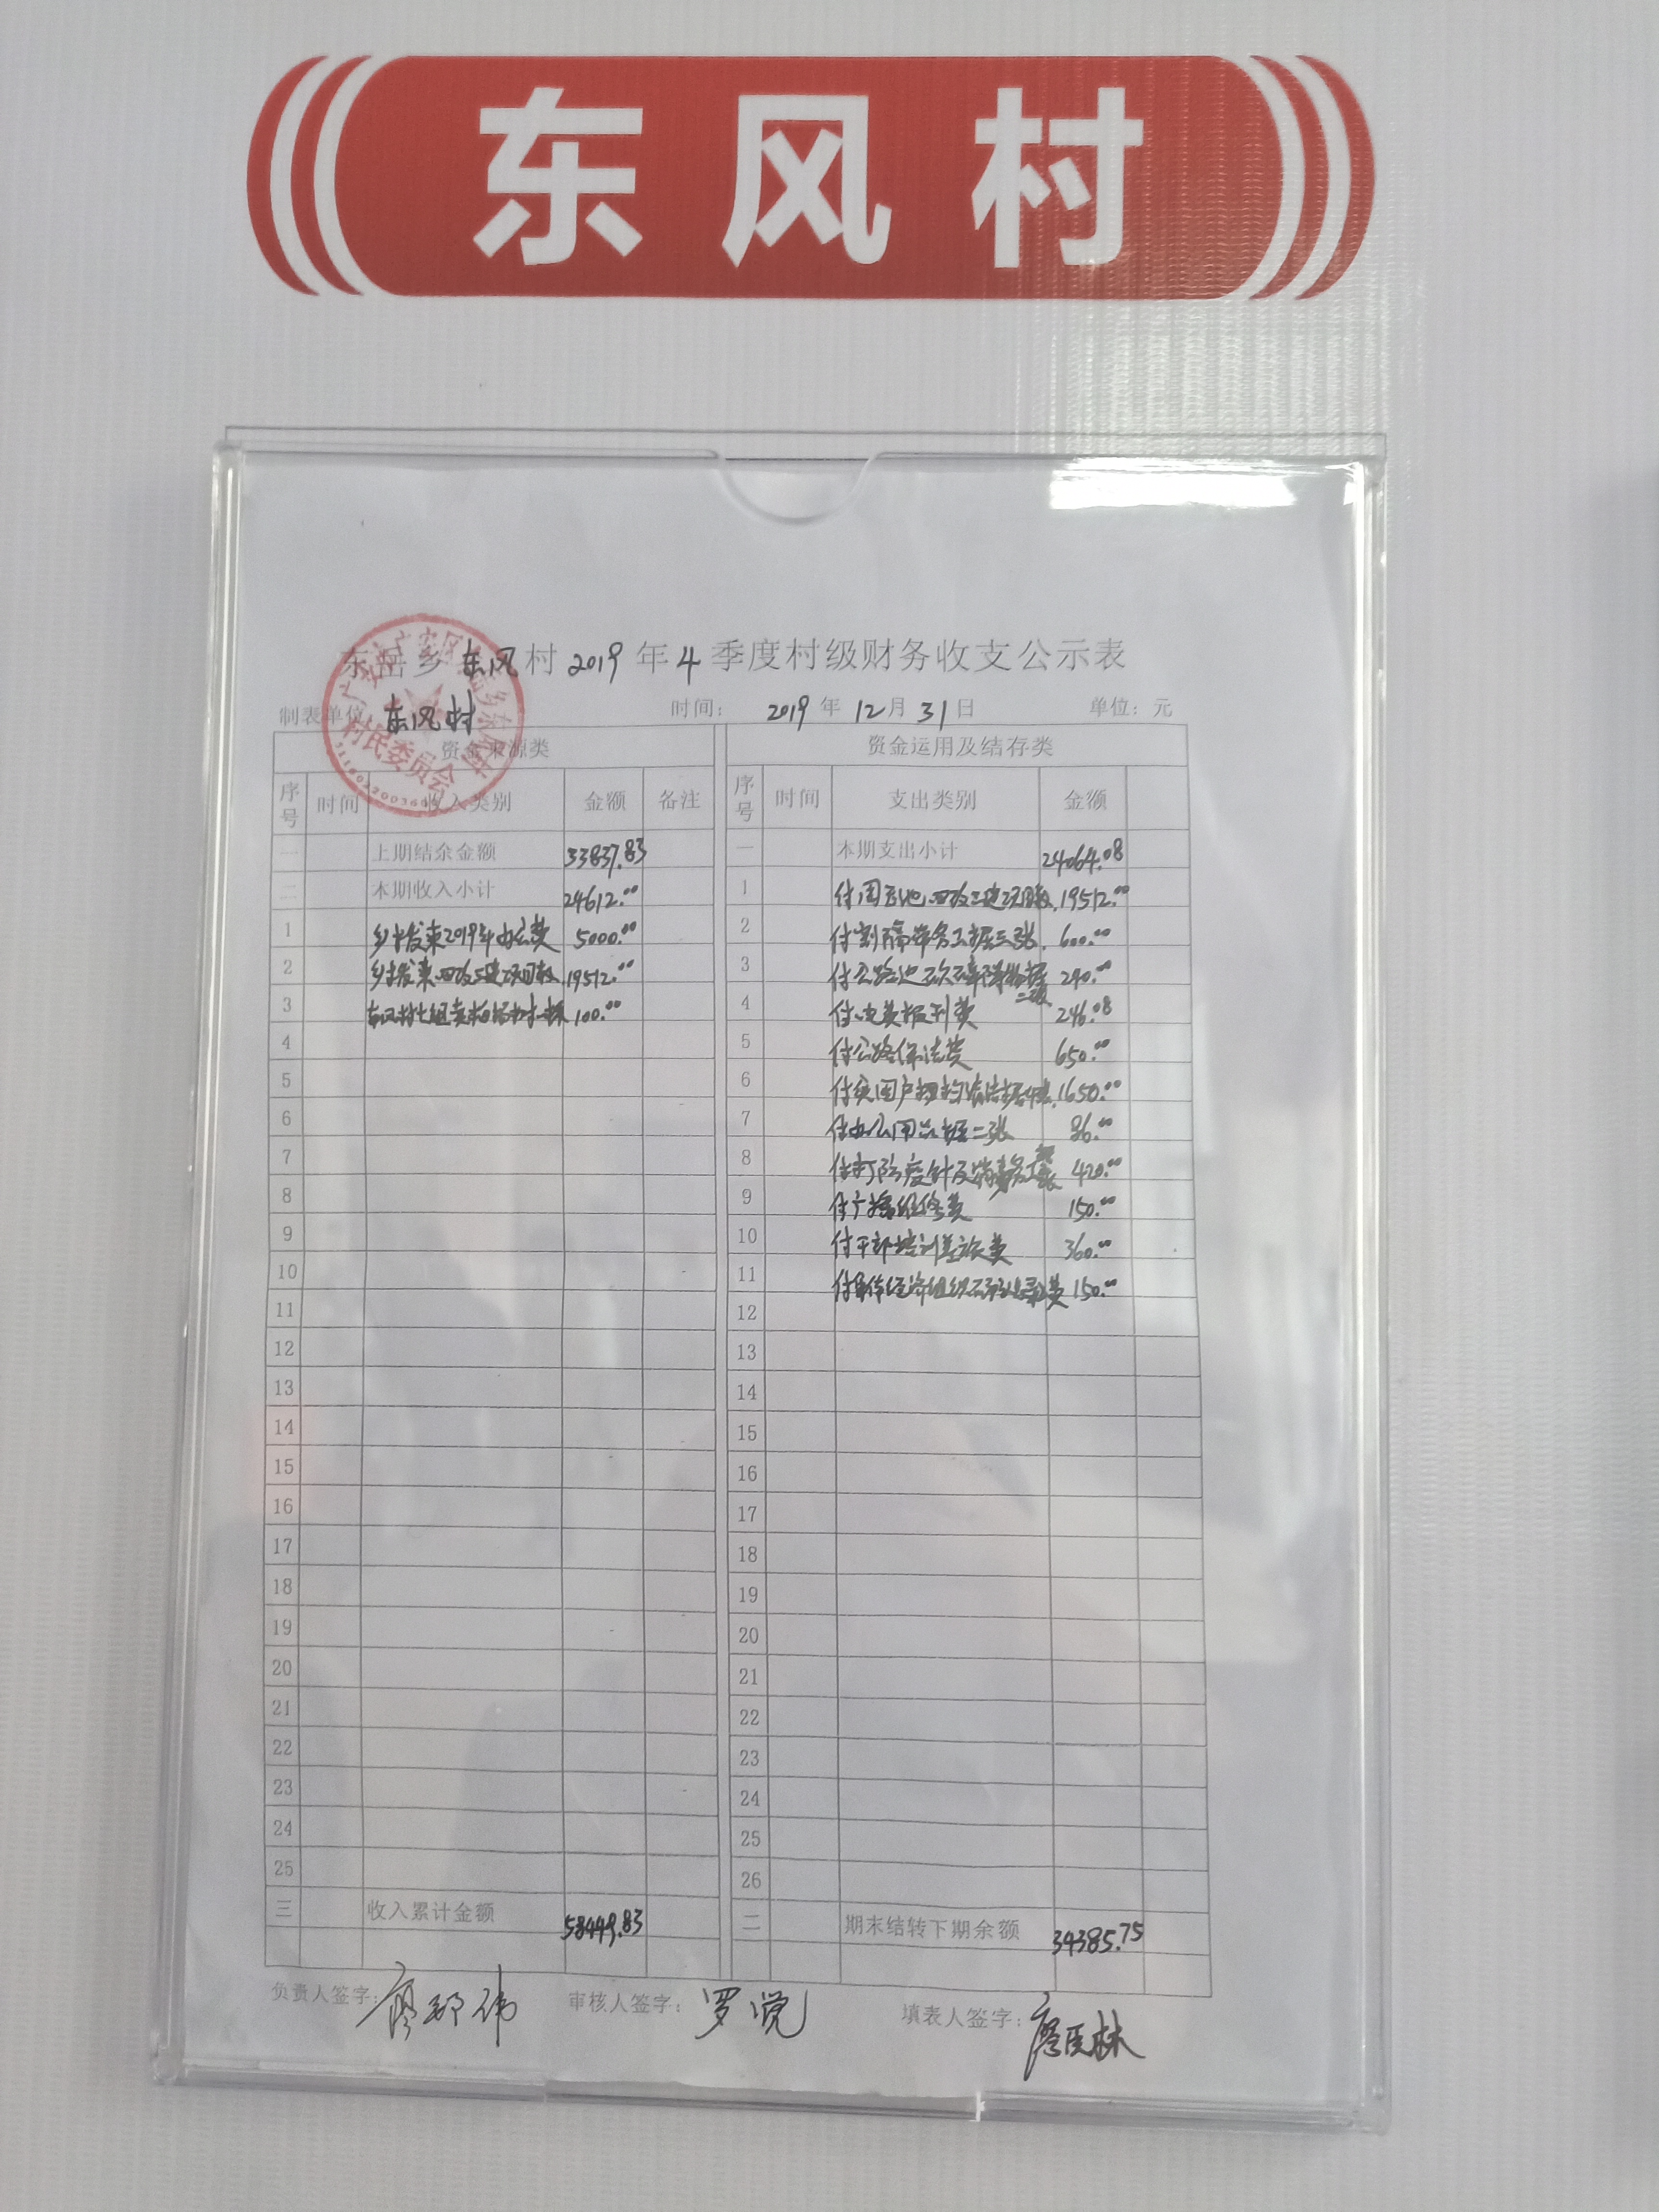 东风村
东岳乡 东风 村 2019 年 4 季度村级财务收支公示表
制表单位 东风村 时间: 2019 年 12 月 31 日 单位: 元
村民委员会
资金来源类 资金运用及结存类
序号 时间 收入类别 金额 备注 序号 时间 支出类别 金额
一 上期结余金额 33837.83 一 本期支出小计 24064.08
二 本期收入小计 24612.00 1 19512.00
1 乡拨来2019年办公费 5000.00 2 600.00
2 乡拨来四改三建项目款 19512.00 3 290.00
3 100.00 4 付电费报刊费 246.08
4 5 付公路保洁费 650.00
5 6 1650.00
6 7 付办公用品据二张 86.00
7 8 420.00
8 9 付广播维修费 150.00
9 10 付干部培训差旅费 360.00
10 11 150.00
11 12
12 13
13 14
14 15
15 16
16 17
17 18
18 19
19 20
20 21
21 22
22 23
23 24
24 25
25 26
三 收入累计金额 58449.83 二 期末结转下期余额 34385.75
负责人签字: 审核人签字: 填表人签字: